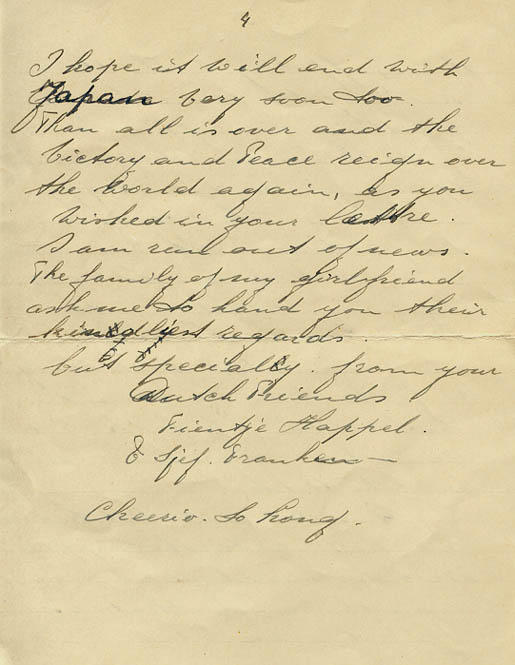 4
I hope it will end with
Japan very soon too.
Than all is over and the
Victory and Peace reign over
the World again, as you
wished in your lettre.
I am run out of news.
The family of my girlfriend
ask me to hand you their
kindliest regards.
but specially. from your
Dutch Friends
Fientje Happel.
& Sjef. Franken
Cheerio. So Long.